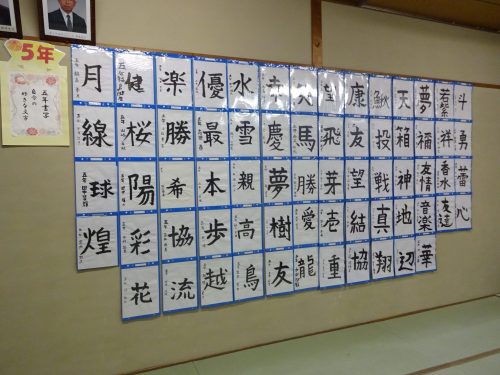 5年
五年書写
自分の
好きな文字
月 健 楽 優 水 幸 望 康 天 夢 斗
線 桜 勝 最 雪 慶 馬 飛 友 投 箱 福 祥 勇
球 陽 希 本 親 夢 勝 芽 望 戦 神 友情 香水 蕾
煌 彩 協 歩 高 樹 愛 壱 結 真 地 音楽 友達 心
花 流 越 鳥 友 龍 重 協 翔 辺 華